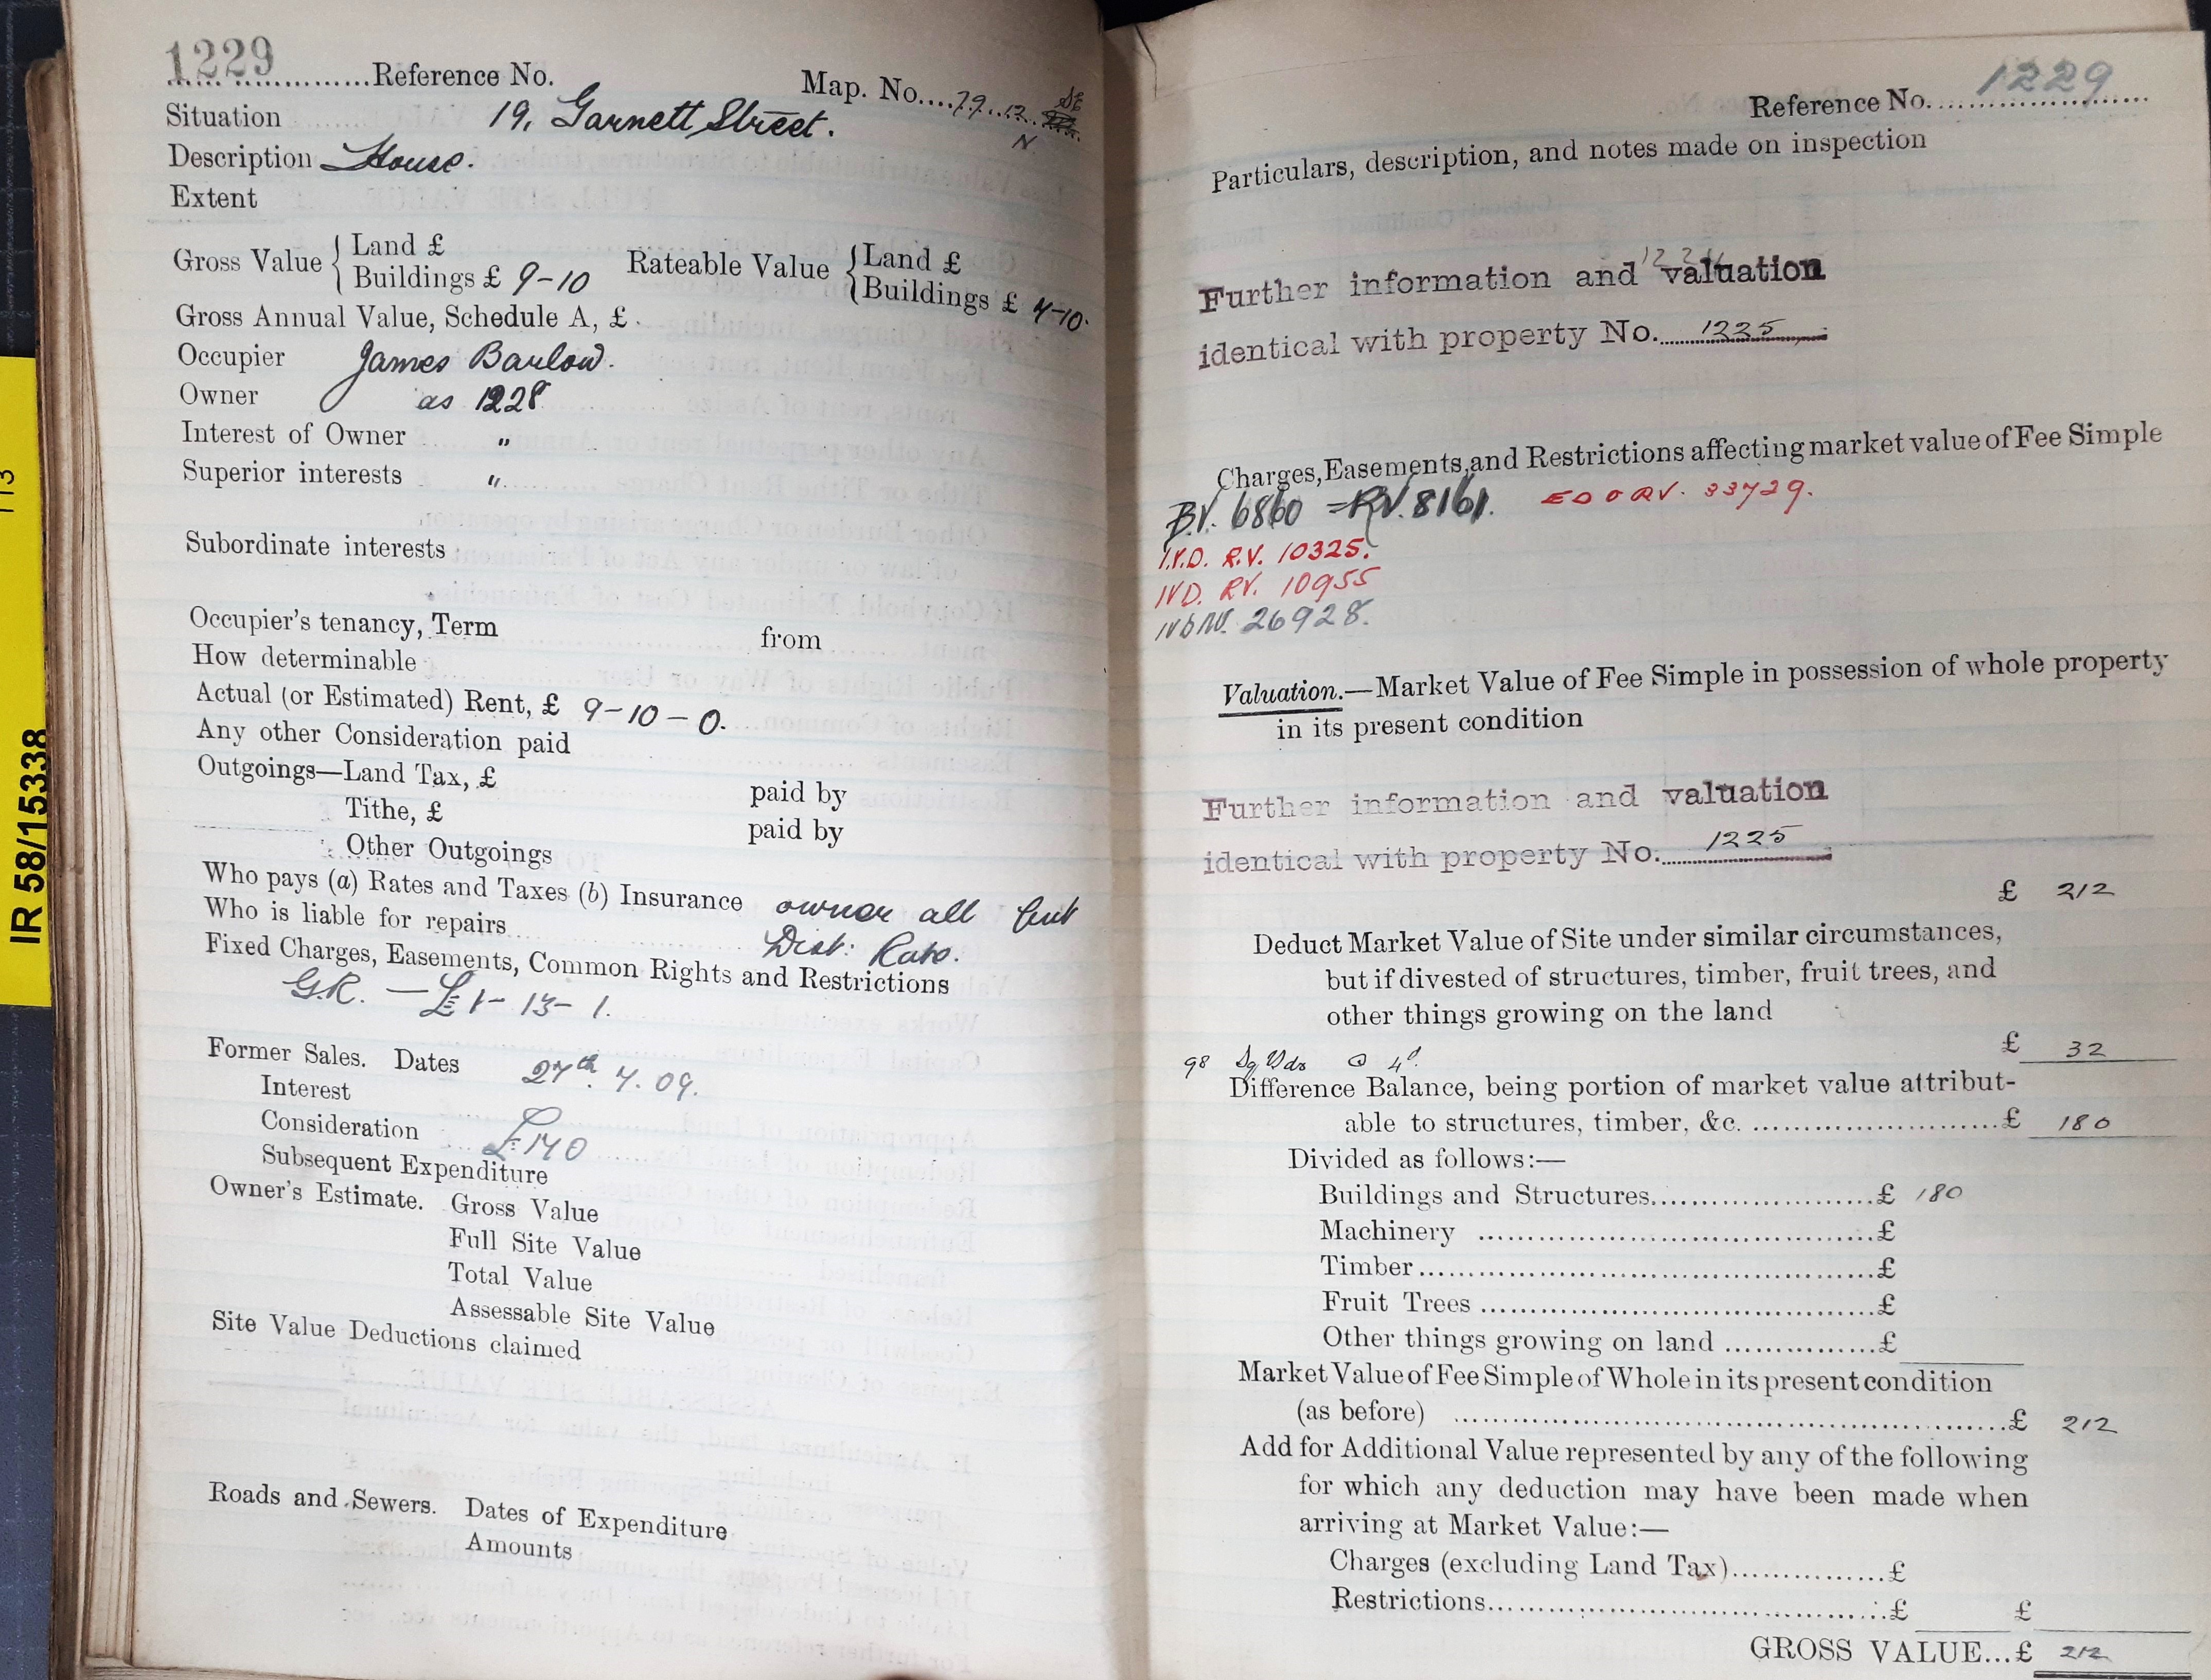 113
IR 58/15338
1229
Reference No. Map. No. 79.12. SE
N
Situation 19, Garnett Street.
Description House.
Extent
Gross Value { Land £
Buildings £ 9-10
Rateable Value { Land £
Buildings £ 7-10.
Gross Annual Value, Schedule A, £
Occupier James Barlow.
Owner as 1228
Interest of Owner "
Superior interests "
Subordinate interests
Occupier's tenancy, Term from
How determinable
Actual (or Estimated) Rent, £ 9-10-0.
Any other Consideration paid
Outgoings—Land Tax, £ paid by
Tithe, £ paid by
Other Outgoings
Who pays (a) Rates and Taxes (b) Insurance owner all but
Who is liable for repairs Dist: Rate.
Fixed Charges, Easements, Common Rights and Restrictions
G.R. — £1-13-1.
Former Sales. Dates 27th. 7. 09.
Interest
Consideration £140
Subsequent Expenditure
Owner's Estimate. Gross Value
Full Site Value
Total Value
Assessable Site Value
Site Value Deductions claimed
Roads and Sewers. Dates of Expenditure
Amounts
Reference No. 1229
Particulars, description, and notes made on inspection
Further information and valuation
identical with property No. 1225
Charges, Easements, and Restrictions affecting market value of Fee Simple
B.V. 6860 = R.V. 8161. RV. 33729.
I.V.D. R.V. 10325.
IVD. RV. 10955
26928.
Valuation.—Market Value of Fee Simple in possession of whole property
in its present condition
Further information and valuation
identical with property No. 1225
£ 212
Deduct Market Value of Site under similar circumstances,
but if divested of structures, timber, fruit trees, and
other things growing on the land
£ 32
98 Sq Yds @ 4d.
Difference Balance, being portion of market value attribut-
able to structures, timber, &c. £ 180
Divided as follows:—
Buildings and Structures £ 180
Machinery £
Timber £
Fruit Trees £
Other things growing on land £
Market Value of Fee Simple of Whole in its present condition
(as before) £ 212
Add for Additional Value represented by any of the following
for which any deduction may have been made when
arriving at Market Value:—
Charges (excluding Land Tax) £
Restrictions £ £
GROSS VALUE...£ 212